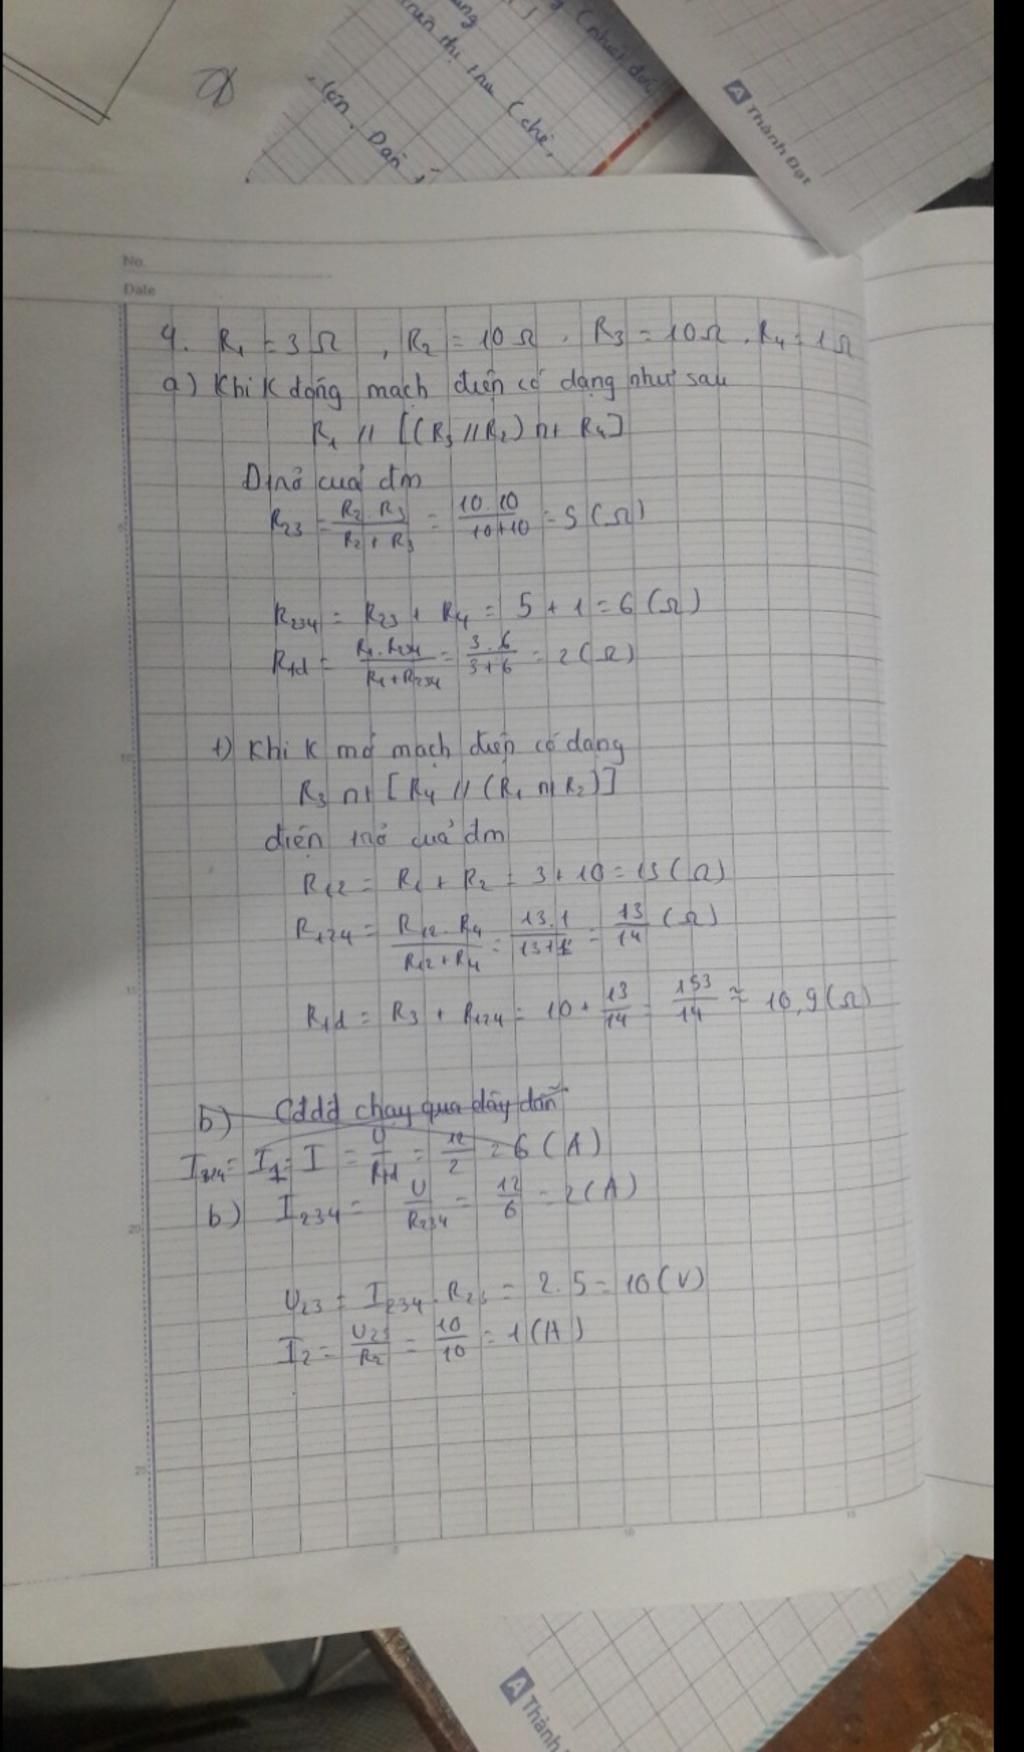 Thành Đạt
No.
Date
4. R₁ = 3Ω , R₂ = 10Ω , R₃ = 10Ω , R₄ = 1Ω
a) Khi K đóng mạch điện có dạng như sau
R₁ // [(R₃ // R₂) nt R₄]
Đ trở của đm
R₂₃ = R₂ . R₃ / R₂ + R₃ = 10 . 10 / 10 + 10 = 5 (Ω)
R₂₃₄ = R₂₃ + R₄ = 5 + 1 = 6 (Ω)
Rtđ = R₁ . R₂₃₄ / R₁ + R₂₃₄ = 3 . 6 / 3 + 6 = 2 (Ω)
+) Khi K mở mạch điện có dạng
R₃ nt [R₄ // (R₁ nt R₂)]
điện trở của đm
R₁₂ = R₁ + R₂ = 3 + 10 = 13 (Ω)
R₁₂₄ = R₁₂ . R₄ / R₁₂ + R₄ = 13 . 1 / 13 + 1 = 13 / 14 (Ω)
Rtđ = R₃ + R₁₂₄ = 10 + 13 / 14 = 153 / 14 ≈ 10,9 (Ω)
b) Cđdđ chạy qua dây dẫn
I₂₃₄ = I₁ = I = U / Rtđ = 12 / 2 = 6 (A)
b) I₂₃₄ = U / R₂₃₄ = 12 / 6 = 2 (A)
U₂₃ = I₂₃₄ . R₂₃ = 2 . 5 = 10 (V)
I₂ = U₂₃ / R₂ = 10 / 10 = 1 (A)
5
10
15
20
25
5
10
15
Thành